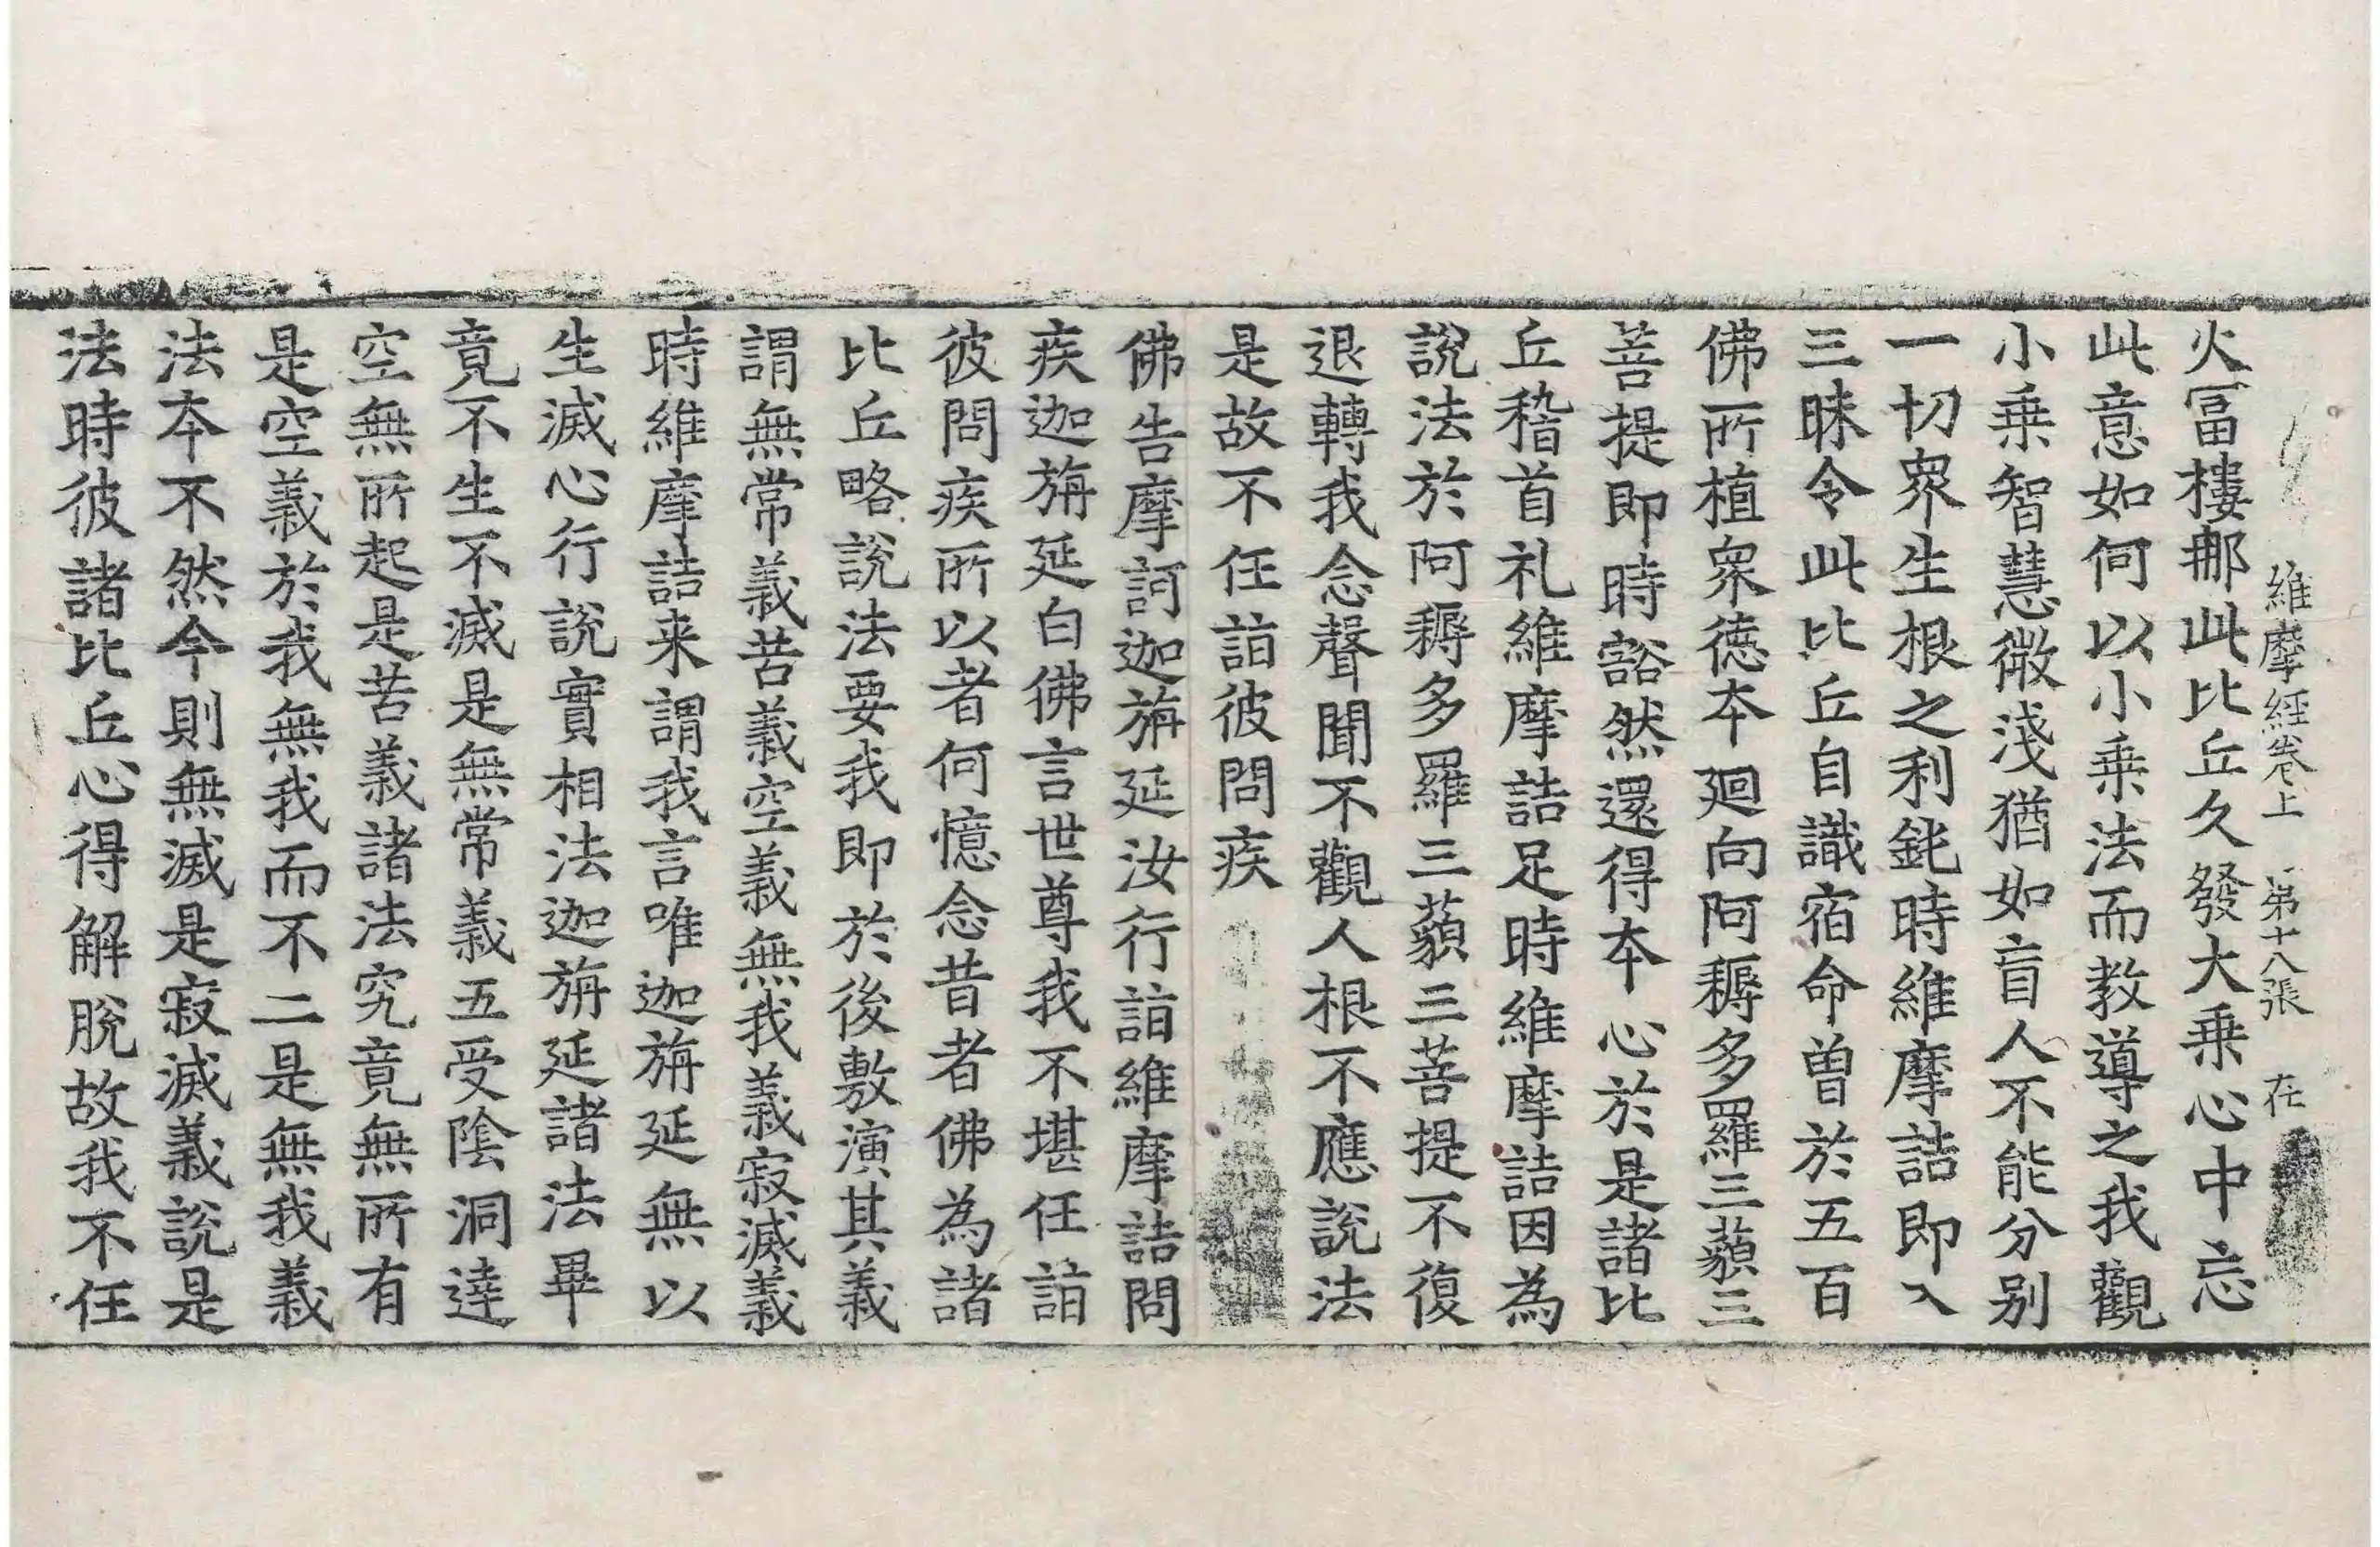 維摩經卷上　第十八張　在
火冨樓那此比丘久發大乗心中忘
此意如何以小乗法而教導之我觀
小乗智慧微淺猶如盲人不能分别
一切衆生根之利鈍時維摩詰即入
三昧令此比丘自識宿命曽於五百
佛所植衆徳本廻向阿耨多羅三藐三
菩提即時豁然還得本心於是諸比
丘稽首礼維摩詰足時維摩詰因為
說法於阿耨多羅三藐三菩提不復
退轉我念聲聞不觀人根不應說法
是故不任詣彼問疾
佛告摩訶迦旃延汝行詣維摩詰問
疾迦旃延白佛言世尊我不堪任詣
彼問疾所以者何憶念昔者佛為諸
比丘略說法要我即於後敷演其義
謂無常義苦義空義無我義寂滅義
時維摩詰来謂我言唯迦旃延無以
生滅心行說實相法迦旃延諸法畢
竟不生不滅是無常義五受陰洞達
空無所起是苦義諸法究竟無所有
是空義於我無我而不二是無我義
法本不然今則無滅是寂滅義說是
法時彼諸比丘心得解脫故我不任